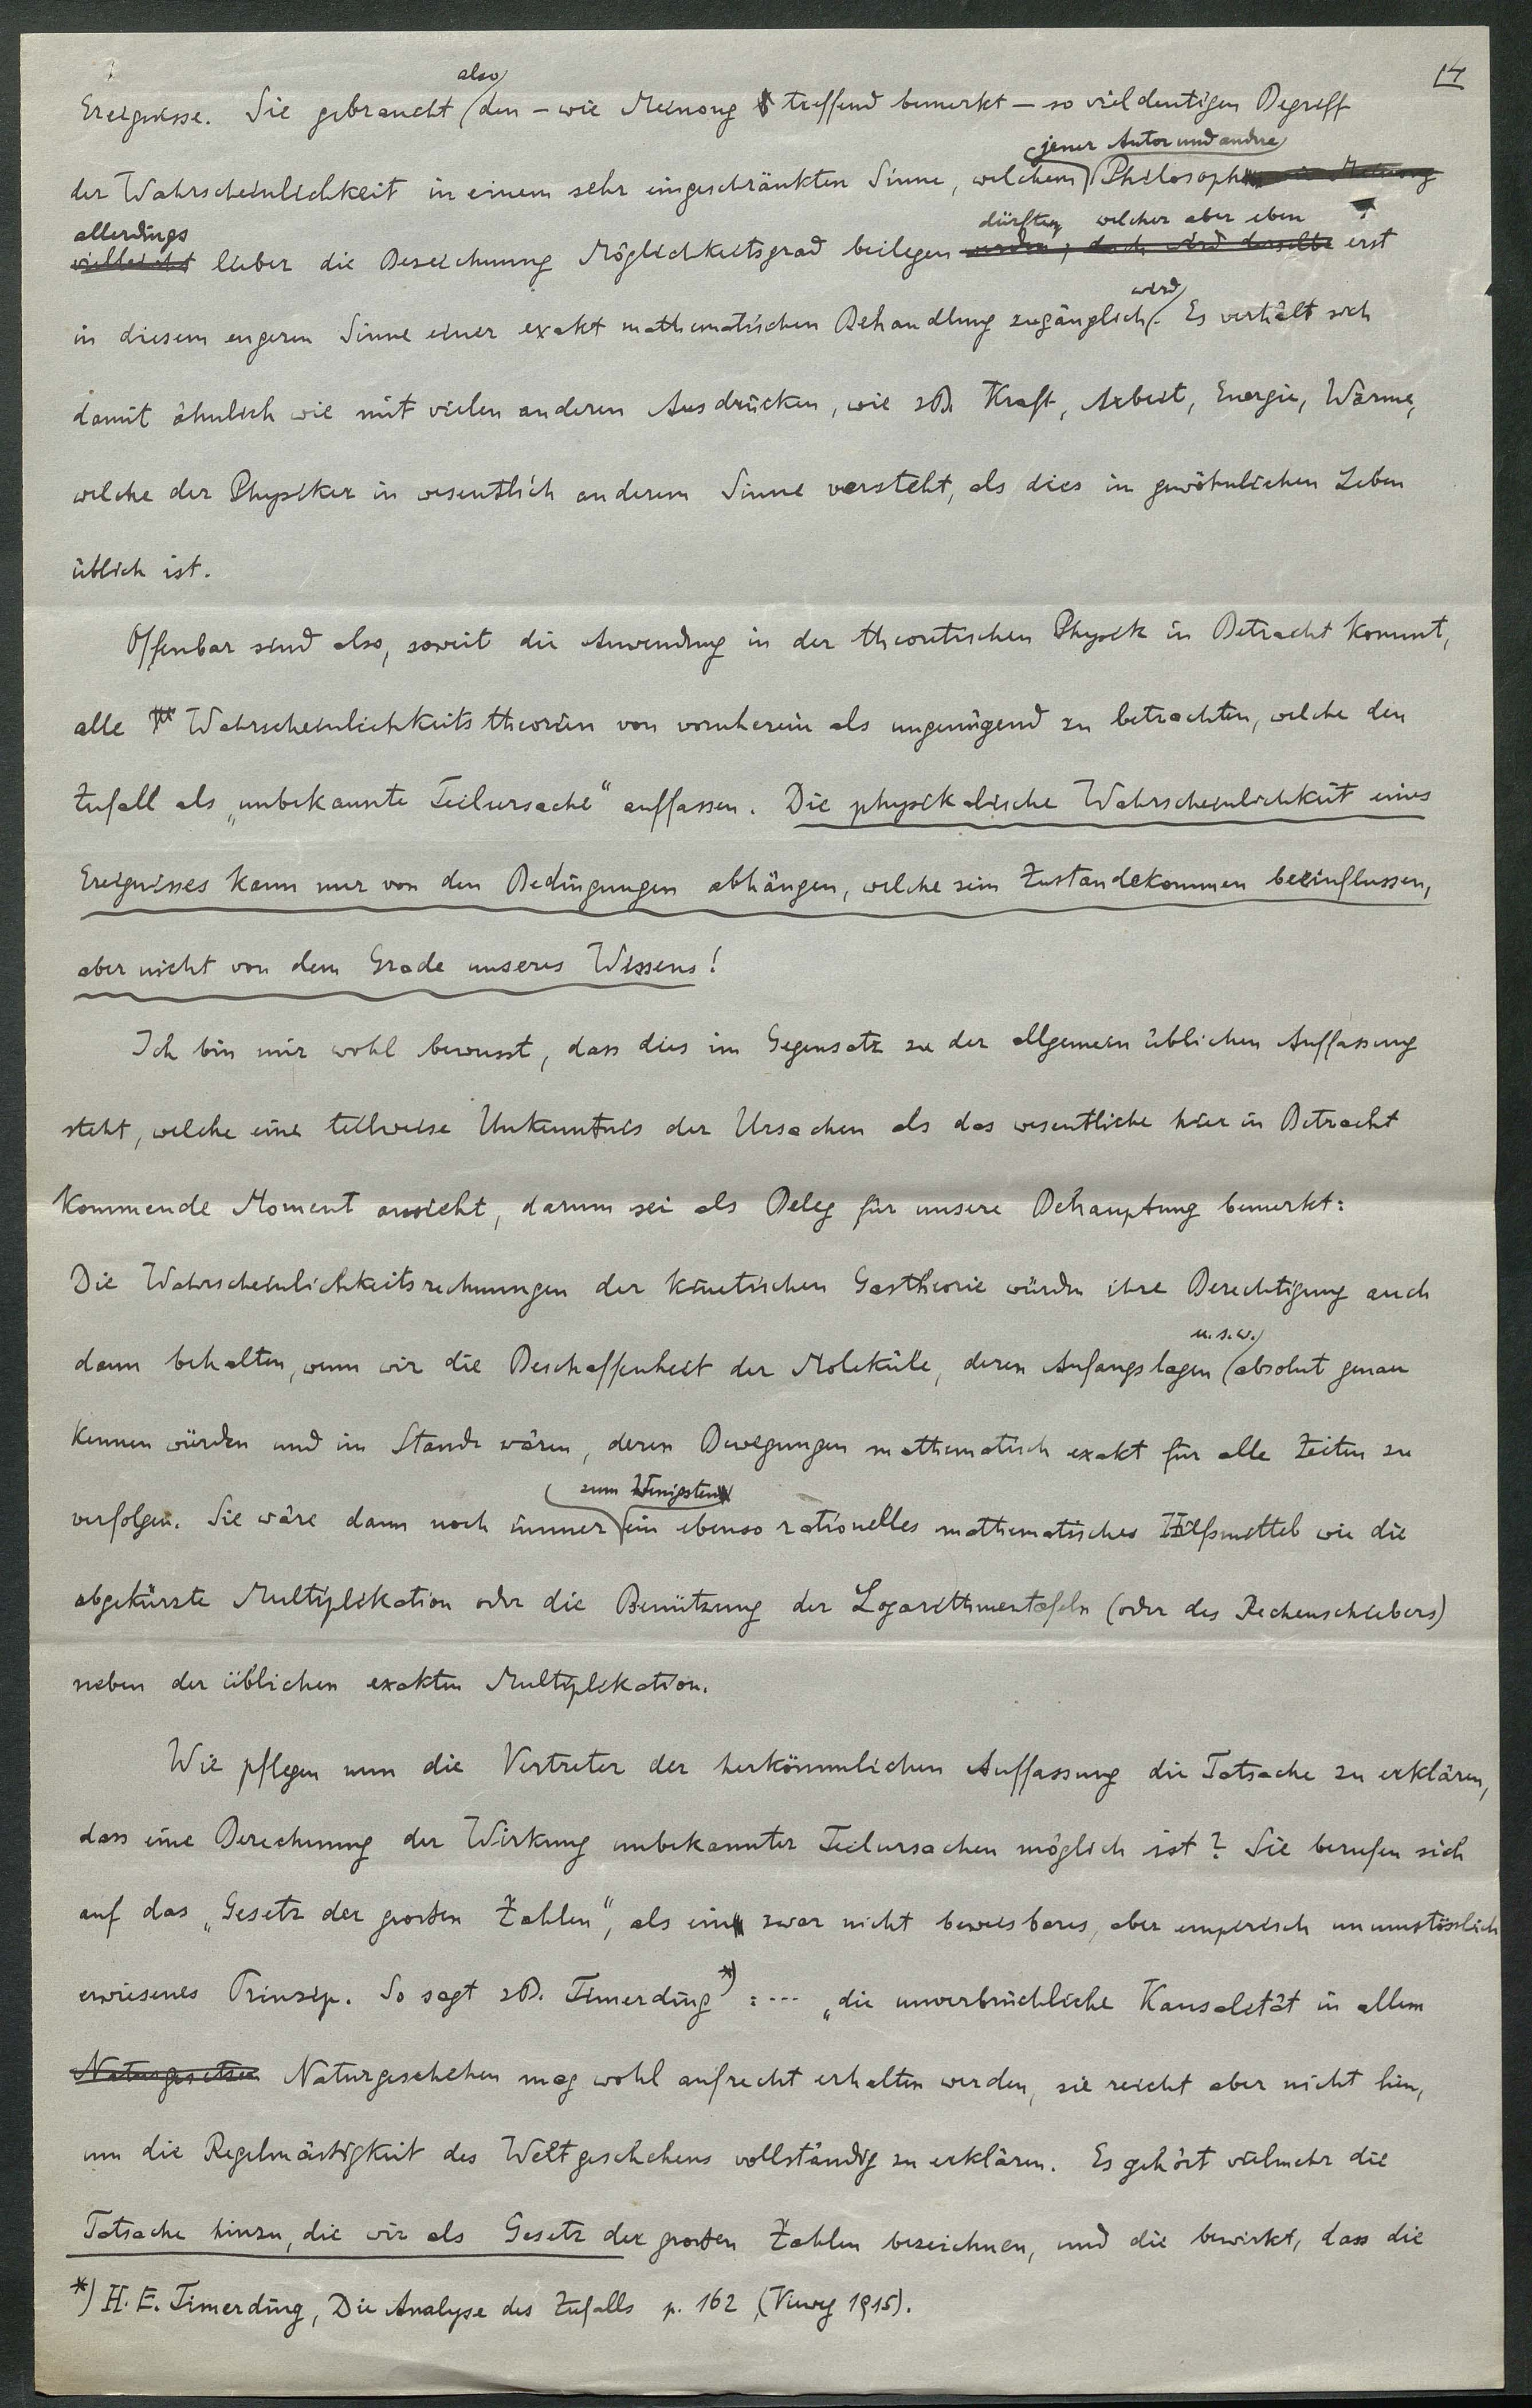 14
Ereignisse. Sie gebraucht also den – wie Meinong treffend bemerkt – so vieldeutigen Begriff
der Wahrscheinlichkeit in einem sehr eingeschränkten Sinne, welchem jener Autor und andre Philosophen
vielleicht allerdings lieber die Bezeichnung Möglichkeitsgrad beilegen werden, doch wird derselbe dürften, welcher aber eben erst
in diesem engeren Sinne einer exakt mathematischen Behandlung zugänglich wird. Es verhält sich
damit ähnlich wie mit vielen anderen Ausdrücken, wie zB. Kraft, Arbeit, Energie, Wärme,
welche der Physiker in wesentlich anderem Sinne versteht, als dies im gewöhnlichen Leben
üblich ist.
Offenbar sind also, soweit die Anwendung in der theoretischen Physik in Betracht kommt,
alle Wahrscheinlichkeitstheorien von vornherein als ungenügend zu betrachten, welche den
Zufall als „unbekannte Teilursache“ auffassen. Die physikalische Wahrscheinlichkeit eines
Ereignisses kann nur von den Bedingungen abhängen, welche sein Zustandekommen beeinflussen,
aber nicht von dem Grade unseres Wissens!
Ich bin mir wohl bewusst, dass dies im Gegensatz zu der allgemein üblichen Auffassung
steht, welche eine teilweise Unkenntnis der Ursachen als das wesentliche hier in Betracht
kommende Moment ansieht, darum sei als Beleg für unsere Behauptung bemerkt:
Die Wahrscheinlichkeitsrechnungen der kinetischen Gastheorie würden ihre Berechtigung auch
dann behalten, wenn wir die Beschaffenheit der Moleküle, deren Anfangslagen u.s.w. absolut genau
kennen würden und im Stande wären, deren Bewegungen mathematisch exakt für alle Zeiten zu
verfolgen. Sie wäre dann noch immer zum Wenigsten ein ebenso rationelles mathematisches Hilfsmittel wie die
abgekürzte Multiplikation oder die Benützung der Logarithmentafeln (oder des Rechenschiebers)
neben der üblichen exakten Multiplikation.
Wie pflegen nun die Vertreter der herkömmlichen Auffassung die Tatsache zu erklären,
dass eine Berechnung der Wirkung unbekannter Teilursachen möglich ist? Sie berufen sich
auf das „Gesetz der grossen Zahlen“, als ein zwar nicht beweisbares, aber empirisch unumstösslich
erwiesenes Prinzip. So sagt zB. Timerding*) : ... „die unverbrüchliche Kausalität in allem
Naturgesetzen Naturgeschehen mag wohl aufrecht erhalten werden, sie reicht aber nicht hin,
um die Regelmässigkeit des Weltgeschehens vollständig zu erklären. Es gehört vielmehr die
Tatsache hinzu, die wir als Gesetz der grossen Zahlen bezeichnen, und die bewirkt, dass die
*) H. E. Timerding, Die Analyse des Zufalls p. 162 (Vieweg 1915).